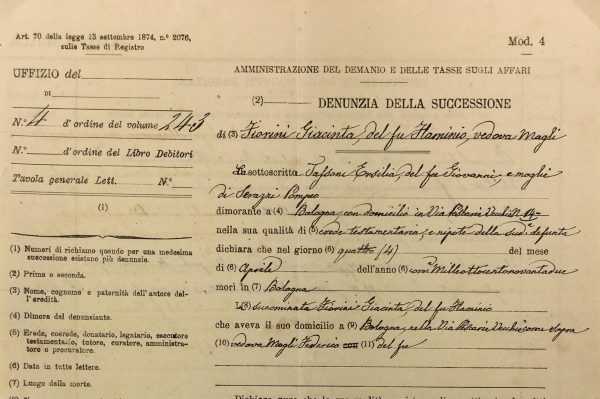 Art. 70 della legge 13 settembre 1874, n.º 2076,
sulle Tasse di Registro
Mod. 4
UFFIZIO del
DI
N.º 4 d'ordine del volume 243
N.º d'ordine del Libro Debitori
Tavola generale Lett. N.º
(1)
(1) Numeri di richiamo quando per una medesima
successione esistano più denunzie.
(2) Prima o seconda.
(3) Nome, cognome e paternità dell'autore del-
l'eredità.
(4) Dimora del denunziante.
(5) Erede, coerede, donatario, legatario, esecutore
testamentario, tutore, curatore, amministra-
tore o procuratore.
(6) Data in tutte lettere.
(7) Luogo della morte.
AMMINISTRAZIONE DEL DEMANIO E DELLE TASSE SUGLI AFFARI
(2) DENUNZIA DELLA SUCCESSIONE
di (3) Fiorini Giacinta, del fu Flaminio, vedova Magli
La sottoscritta Tassoni Ersilia, del fu Giovanni, e moglie
di Serazzi Pompeo
dimorante a (4) Bologna, con domicilio in Via Pescarie Vecchie N. 14
nella sua qualità di (5) erede testamentaria, e nipote della sud.ª defunta
dichiara che nel giorno (6) quattro (4) del mese
di (6) Aprile dell'anno (6) corr.e Milleottocentonovantadue
morì in (7) Bologna
L(8) sunominata Fiorini Giacinta, del fu Flaminio
che aveva il suo domicilio a (9) Bologna, nella Via Pescarie Vecchie come sopra
(10) vedova Magli Federico (11) del fu